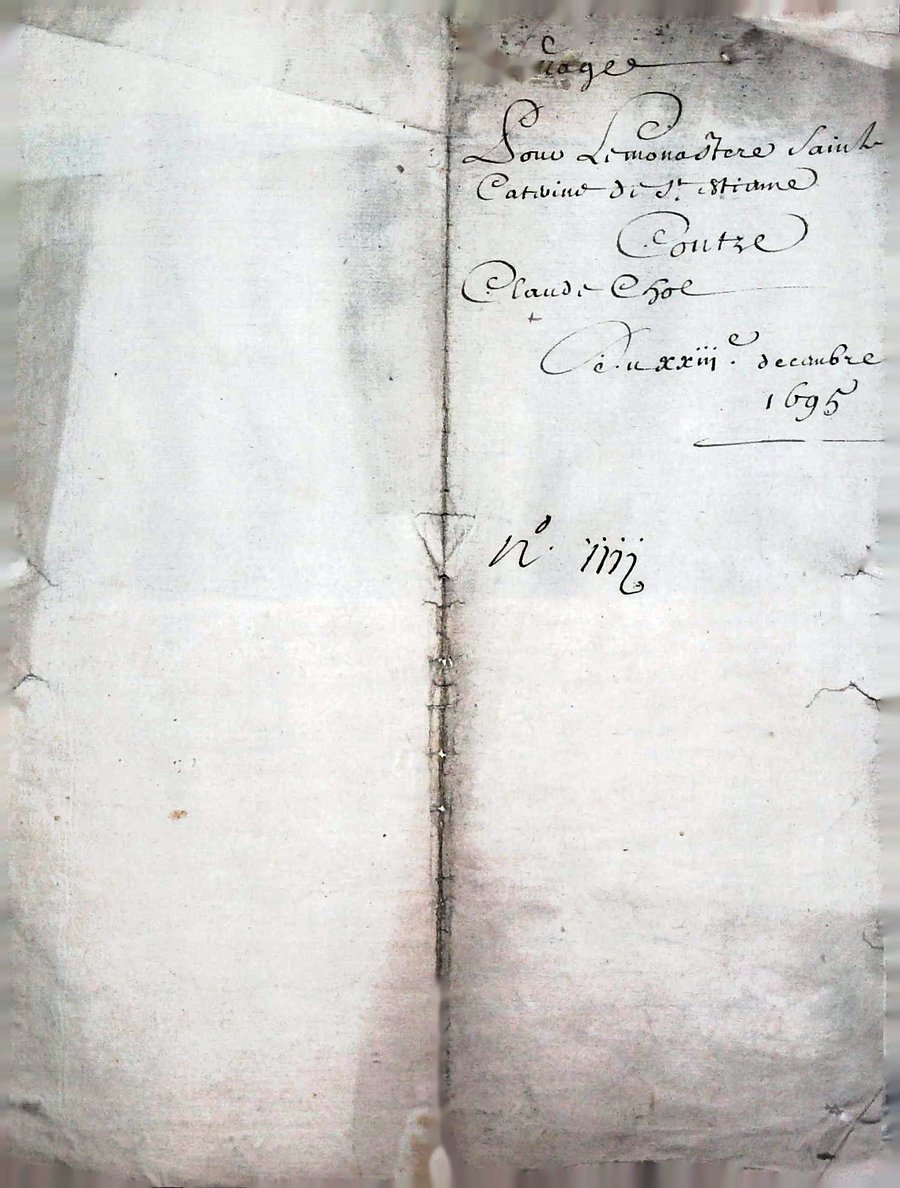 Pour Le monastere Sainte
Caterine de St Estienne
Contre
Claude Chol
Du xxiiie decembre
1695
No. iiij